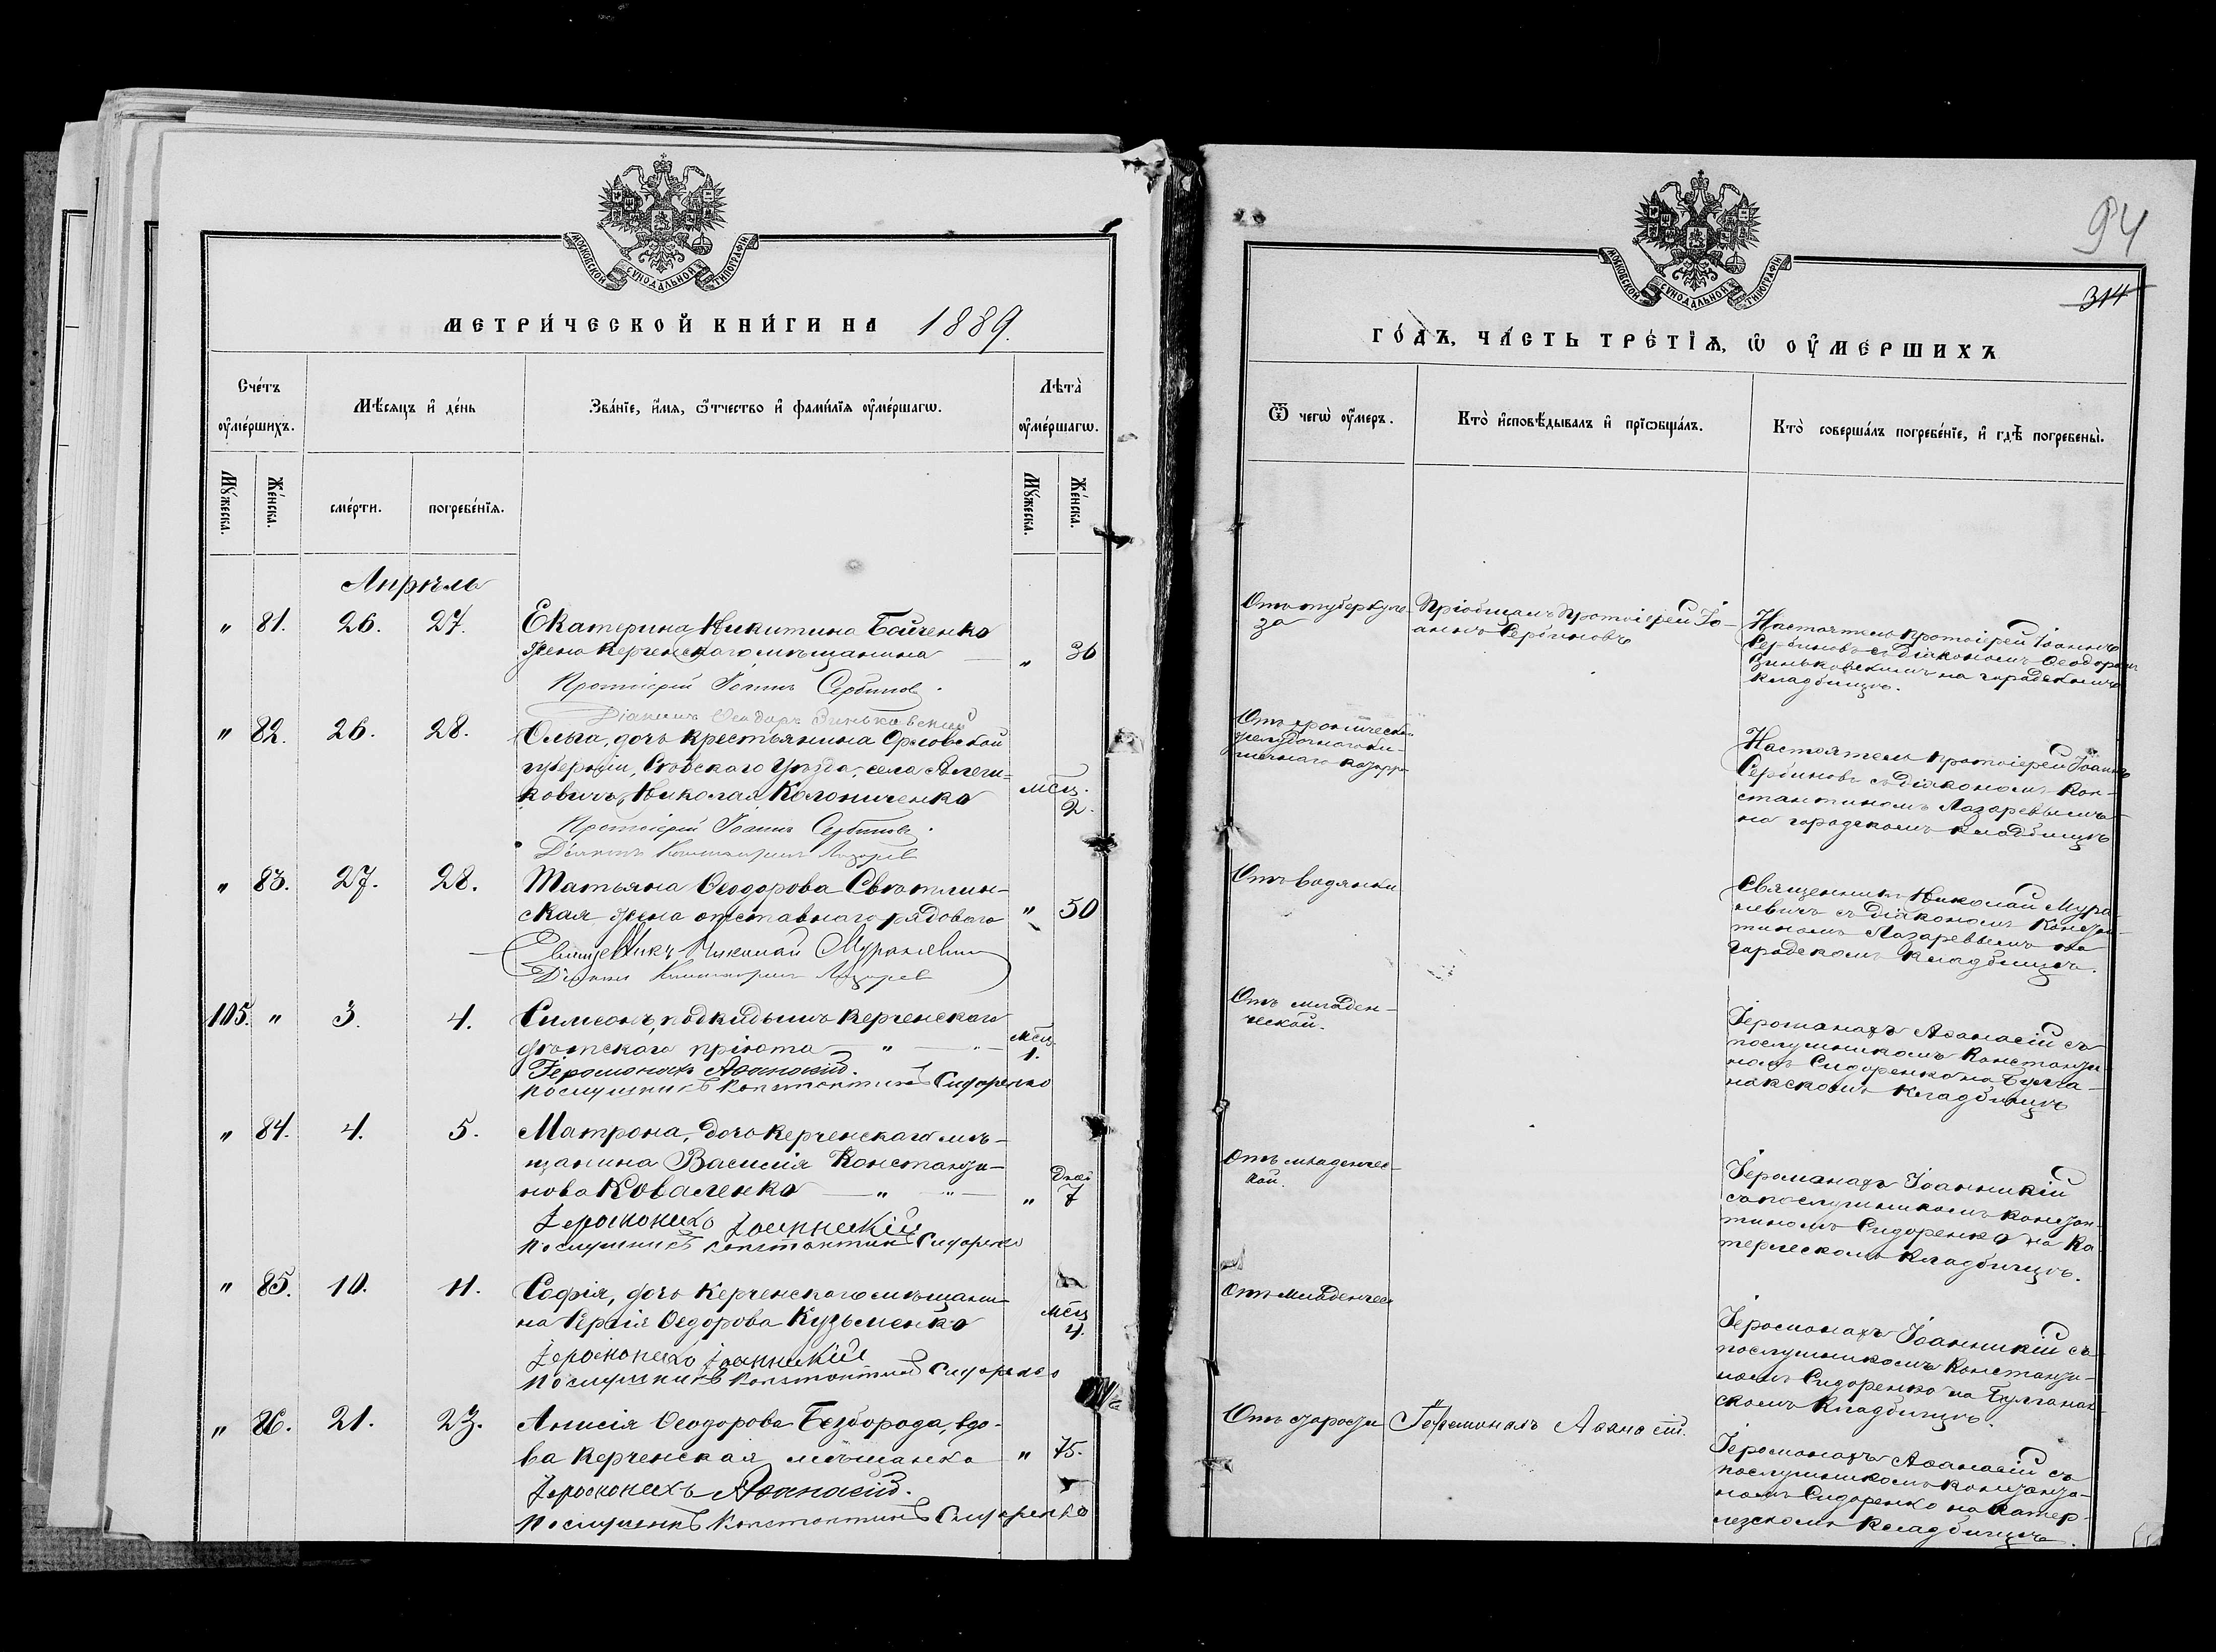 МОСКОВСКОЙ СУНОДАЛЬНОЙ ТИПОГРАФІИ
МЕТРИ́ЧЕСКОЙ КНИ́ГИ НА 1889.
Сче́тъ оу҆ме́ршихъ.
Мѣ́сяцъ и҆ де́нь
Зва́нїе, и҆́мя, ѻ҆́тчество и҆ фами́лїя оу҆ме́ршагѡ.
Лѣта̀ оу҆ме́ршагѡ.
Му́жеска.
Же́нска.
сме́рти.
погребе́нїя.
Му́жеска.
Же́нска.
Апрѣль
" 81. 26. 27. Екатерина Никитина Бойченко
жена Керченскаго мѣщанина " 36
Протоіерей Іоаннъ Сербиновъ.
Діаконъ Ѳеодоръ Зиньковскій
" 82. 26. 28. Ольга, дочь крестьянина Орловской
губерніи, Сѣвского уѣзда, села
Николая Колониченко мѣсц. 2.
Протоіерей Іоаннъ Сербиновъ.
Діаконъ Константинъ Лазарев
" 83. 27. 28. Татьяна Ѳеодорова Свѣтлин-
ская жена отставнаго рядового " 50
Священникъ Николай Мураневич
Діаконъ Константинъ Лазарев
105. " 3. 4. Симеонъ, подкидышъ Керченскаго
дѣтскаго пріюта " мѣсц. 1.
Іеромонахъ Аѳанасій.
послушникъ Константинъ Сидоренко
" 84. 4. 5. Матрона, дочь Керченскаго мѣ-
щанина Василія Константи-
нова Коваленко " Дней 7
Іеромонахъ Іоанникій
послушникъ Константинъ Сидоренко
" 85. 10. 11. Софія, дочь Керченскаго мѣщани-
на Сергія Ѳедорова Кузьменко мѣсц 4.
Іеромонахъ Іоанникій
послушникъ Константинъ Сидоренко
" 86. 21. 23. Анисія Ѳеодорова Безборода, вдо-
ва Керченская мѣщанка " 75.
Іеромонахъ Аѳанасій.
послушникъ Константинъ Сидоренко
94
314
МОСКОВСКОЙ СУНОДАЛЬНОЙ ТИПОГРАФІИ
ГО́ДЪ, ЧА́СТЬ ТРЕ́ТІѦ, Ѡ҆ ОУ҆МЕ́РШИХЪ
Ѿ чегѡ̀ оу҆́меръ.
Кто̀ и҆сповѣ́дывалъ и҆ прїѡбща́лъ.
Кто̀ соверша́лъ погребе́нїе, и҆ гдѣ̀ погребены̀.
Отъ туберкуле-
за
Пріобщалъ Протоіерей Іо-
аннъ Сербиновъ
Настоятель Протоіерей Іоаннъ
Сербиновъ съ Діакономъ Ѳеодоромъ
Зиньковскимъ на городскомъ
кладбищѣ.
Отъ хроническ
желудочно-ки-
шечнаго катарра
Настоятель Протоіерей Іоаннъ
Сербиновъ съ Діакономъ Кон-
стантиномъ Лазаревымъ
на городскомъ кладбищѣ
Отъ водянки
Священникъ Николай Мура-
невичъ съ діакономъ Констан-
тиномъ Лазаревымъ на
городскомъ кладбищѣ.
Отъ младен-
ческой.
Іеромонахъ Аѳанасій съ
послушникомъ Константи-
номъ Сидоренко на Булга-
накскомъ кладбищѣ
Отъ младенчес-
кой.
Іеромонахъ Іоанникій
съ послушникомъ Констан-
тиномъ Сидоренко на Ка-
терлесскомъ кладбищѣ.
Отъ младенчес
Іеромонахъ Іоанникій съ
послушникомъ Константи-
номъ Сидоренко на Булганак-
скомъ кладбищѣ.
Отъ старости
Іеромонахъ Аѳанасій.
Іеромонахъ Аѳанасій съ
послушникомъ Константи-
номъ Сидоренко на Катер-
лезскомъ кладбищѣ.